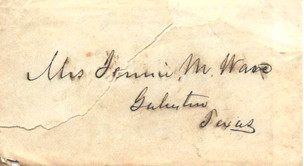 Mrs Fannie M. Ward
Galveston
Texas